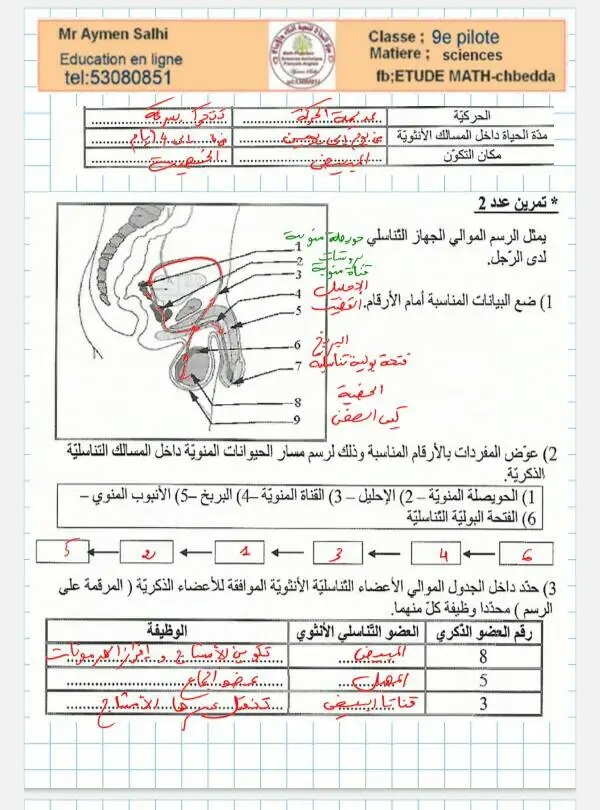 Mr Aymen Salhi
Education en ligne
tel:53080851
Classe ; 9e pilote
Matiere ; sciences
fb;ETUDE MATH-chbedda
الحركيّة عديمة الحركة تتحرك بسرعة
مدّة الحياة داخل المسالك الأنثويّة من يوم إلى يومين من 3 إلى 4 أيام
مكان التكوّن المبيض الخصية
* تمرين عدد 2
يمثّل الرسم الموالي الجهاز التّناسلي
لدى الرّجل.
1) ضع البيانات المناسبة أمام الأرقام.
1 حويصلة منوية
2 بروستات
3 قناة منوية
4 الإحليل
5 القضيب
6 البربخ
7 فتحة بولية تناسلية
8 الخصية
9 كيس الصفن
2) عوّض المفردات بالأرقام المناسبة وذلك لرسم مسار الحيوانات المنويّة داخل المسالك التناسليّة
الذكريّة.
1) الحويصلة المنويّة – 2) الإحليل – 3) القناة المنويّة –4) البربخ –5) الأنبوب المنوي –
6) الفتحة البوليّة التّناسليّة
6 ← 4 ← 3 ← 1 ← 2 ← 5
3) حدّد داخل الجدول الموالي الأعضاء التّناسليّة الأنثويّة الموافقة للأعضاء الذكريّة ( المرقمة على
الرسم ) محدّدا وظيفة كلّ منهما.
رقم العضو الذكري العضو التّناسلي الأنثوي الوظيفة
8 المبيض تكوين الأمشاج و إفراز الهرمونات
5 المهبل عضو الجماع
3 قناتا المبيض تنتقل عبرها الأمشاج